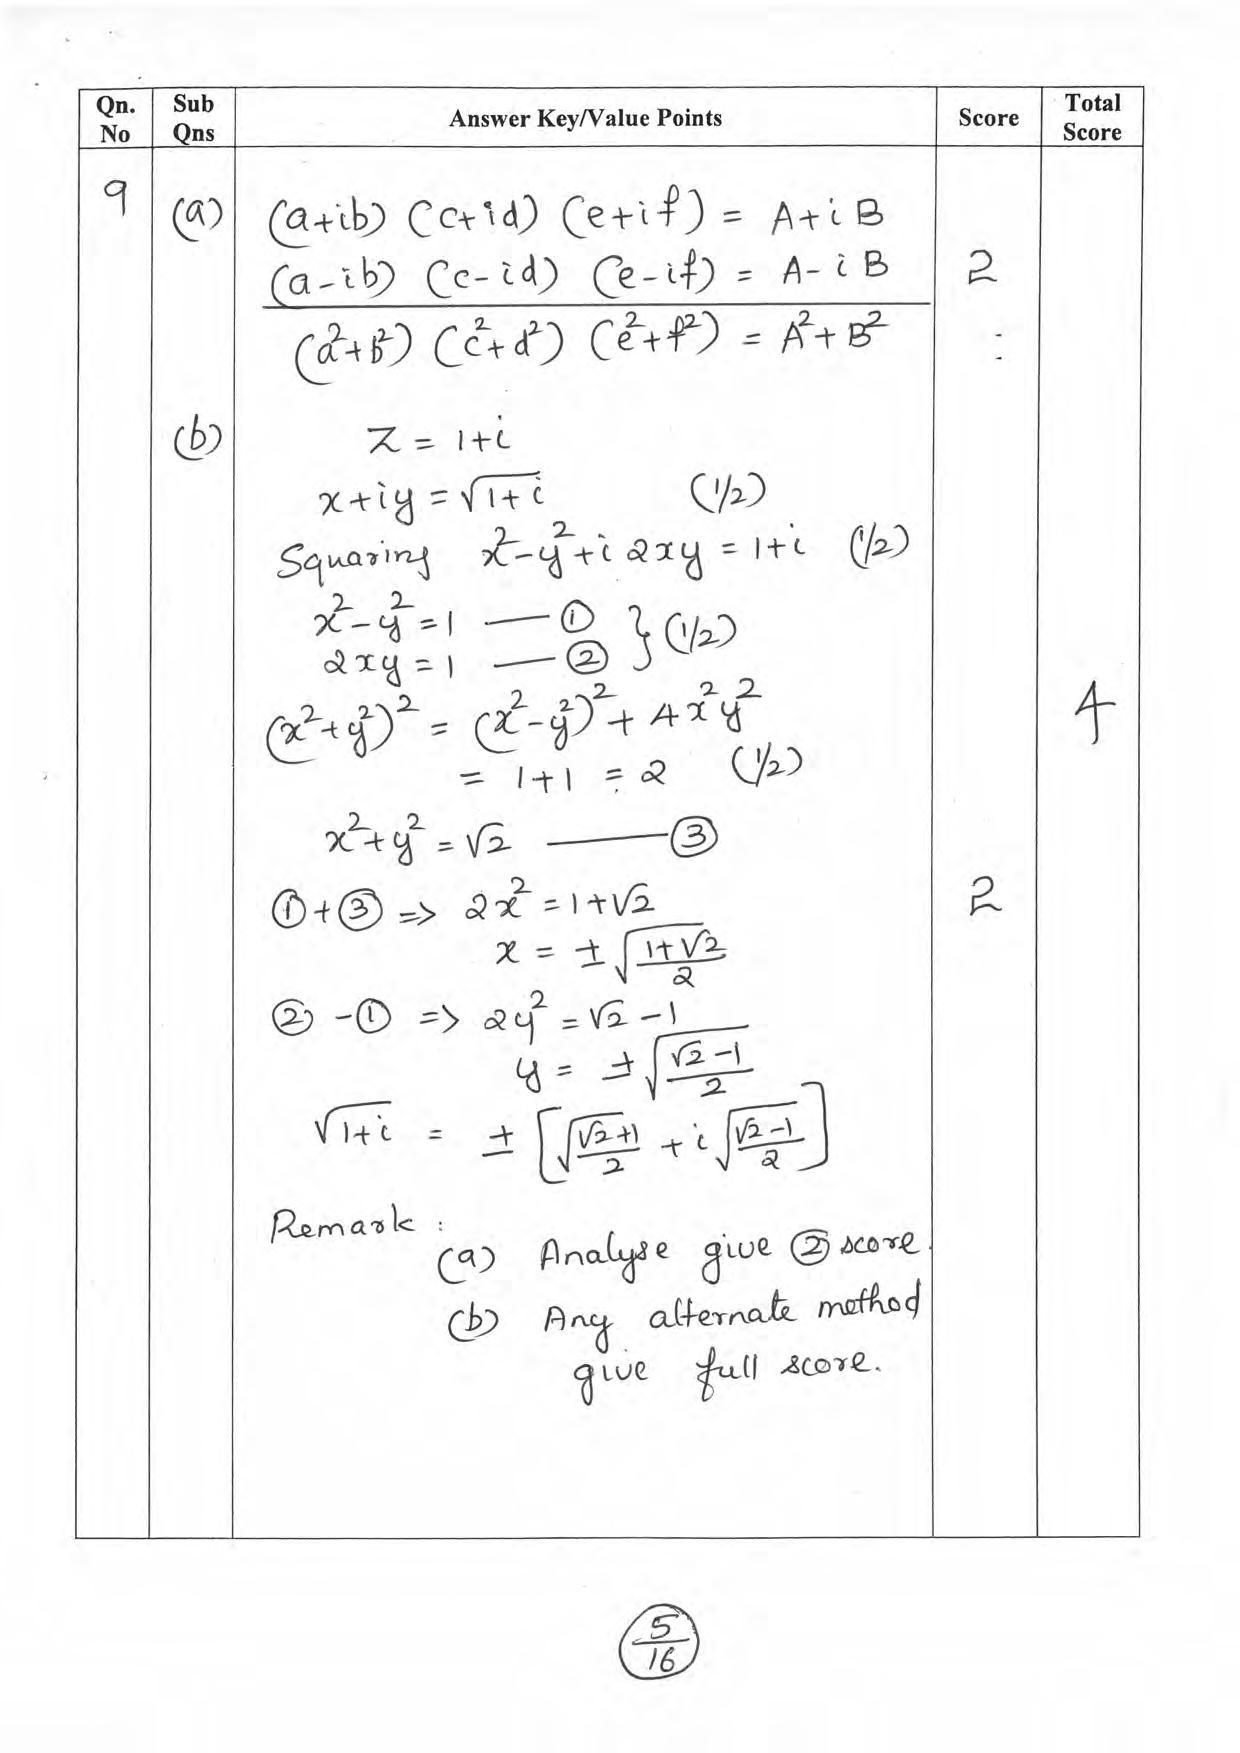 Qn. No Sub Qns Answer Key/Value Points Score Total Score
9 (a) (a+ib) (c+id) (e+if) = A+iB
(a-ib) (c-id) (e-if) = A-iB 2
(a²+b²) (c²+d²) (e²+f²) = A²+B²
(b) Z = 1+i
x+iy = √(1+i) (1/2)
Squaring x²-y²+i2xy = 1+i (1/2)
x²-y²=1 — ①
2xy=1 — ② } (1/2)
(x²+y²)² = (x²-y²)²+4x²y² 4
= 1+1 = 2 (1/2)
x²+y² = √2 — ③
①+③ => 2x² = 1+√2 2
x = ±√((1+√2)/2)
②-① => 2y² = √2-1
y = ±√((√2-1)/2)
√(1+i) = ±[√((√2+1)/2) + i√((√2-1)/2)]
Remark :
(a) Analyse give ② score.
(b) Any alternate method
give full score.
5/16